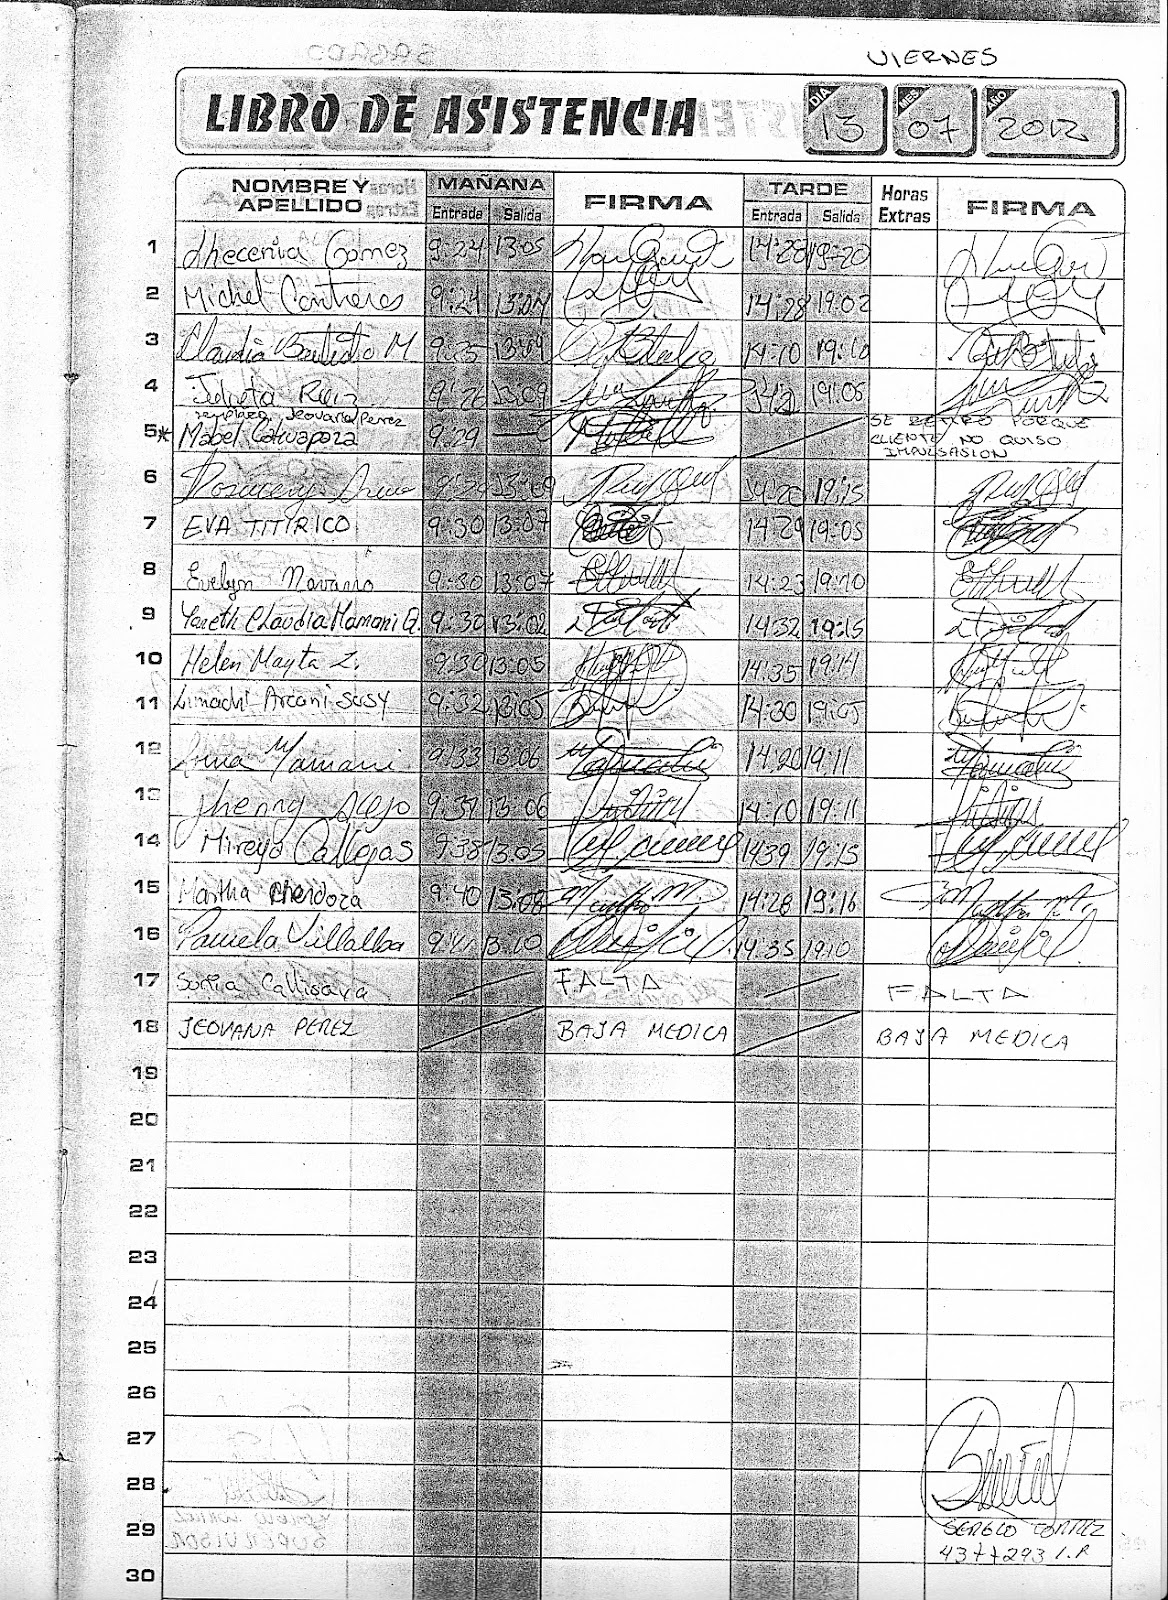 VIERNES
LIBRO DE ASISTENCIA DIA 13 MES 07 AÑO 2012
NOMBRE Y APELLIDO MAÑANA FIRMA TARDE Horas Extras FIRMA
Entrada Salida Entrada Salida
1 Jhecenia Gomez 9:24 13:05 14:28 19:20
2 Michel Contreras 9:24 13:04 14:28 19:02
3 Claudia Bautista M 9:25 13:09 14:10 19:10
4 Julieta Ruiz 9:26 13:09 19:06
remplazo Jeovana Perez
5* Mabel 9:29 — SE RETIRO PORQUE
CLIENTE NO QUISO
IMPULSASION
6 13:09 14:20 19:15
7 EVA TITIRICO 9:30 13:07 14:29 19:05
8 Evelyn Navarro 9:30 13:07 14:23 19:10
9 Yaneth Claudia Mamani Q. 9:30 13:02 14:32 19:15
10 Helen Mayta Z. 9:30 13:05 14:35 19:14
11 Limachi Arcani Susy 9:32 13:05 14:30 19:05
12 Mamani 9:33 13:06 14:20 19:11
13 Jhenny Alejo 9:37 13:06 14:10 19:11
14 Mireya Callejas 9:38 13:05 14:39 19:15
15 Martha Mendoza 9:40 13:08 14:28 19:16
16 Pamela Villalba 9:41 13:10 14:35 19:10
17 Sonia Callisaya FALTA FALTA
18 JEOVANA PEREZ BAJA MEDICA BAJA MEDICA
19
20
21
22
23
24
25
26
27
28
29 SERGIO TORREZ
30